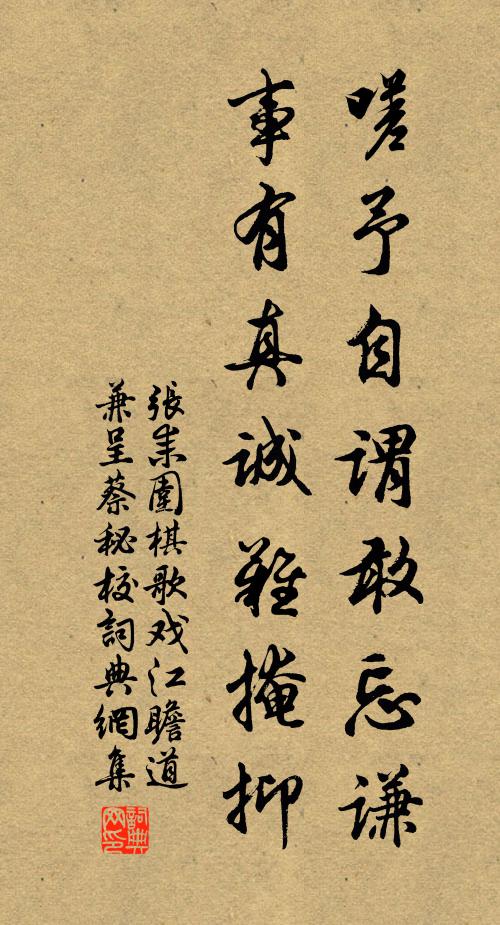 嗟予自谓敢忘谦
事有真诚难掩抑
張耒圍棋歌戏江瞻道
兼呈蔡秘校詞典網集
詞典网印